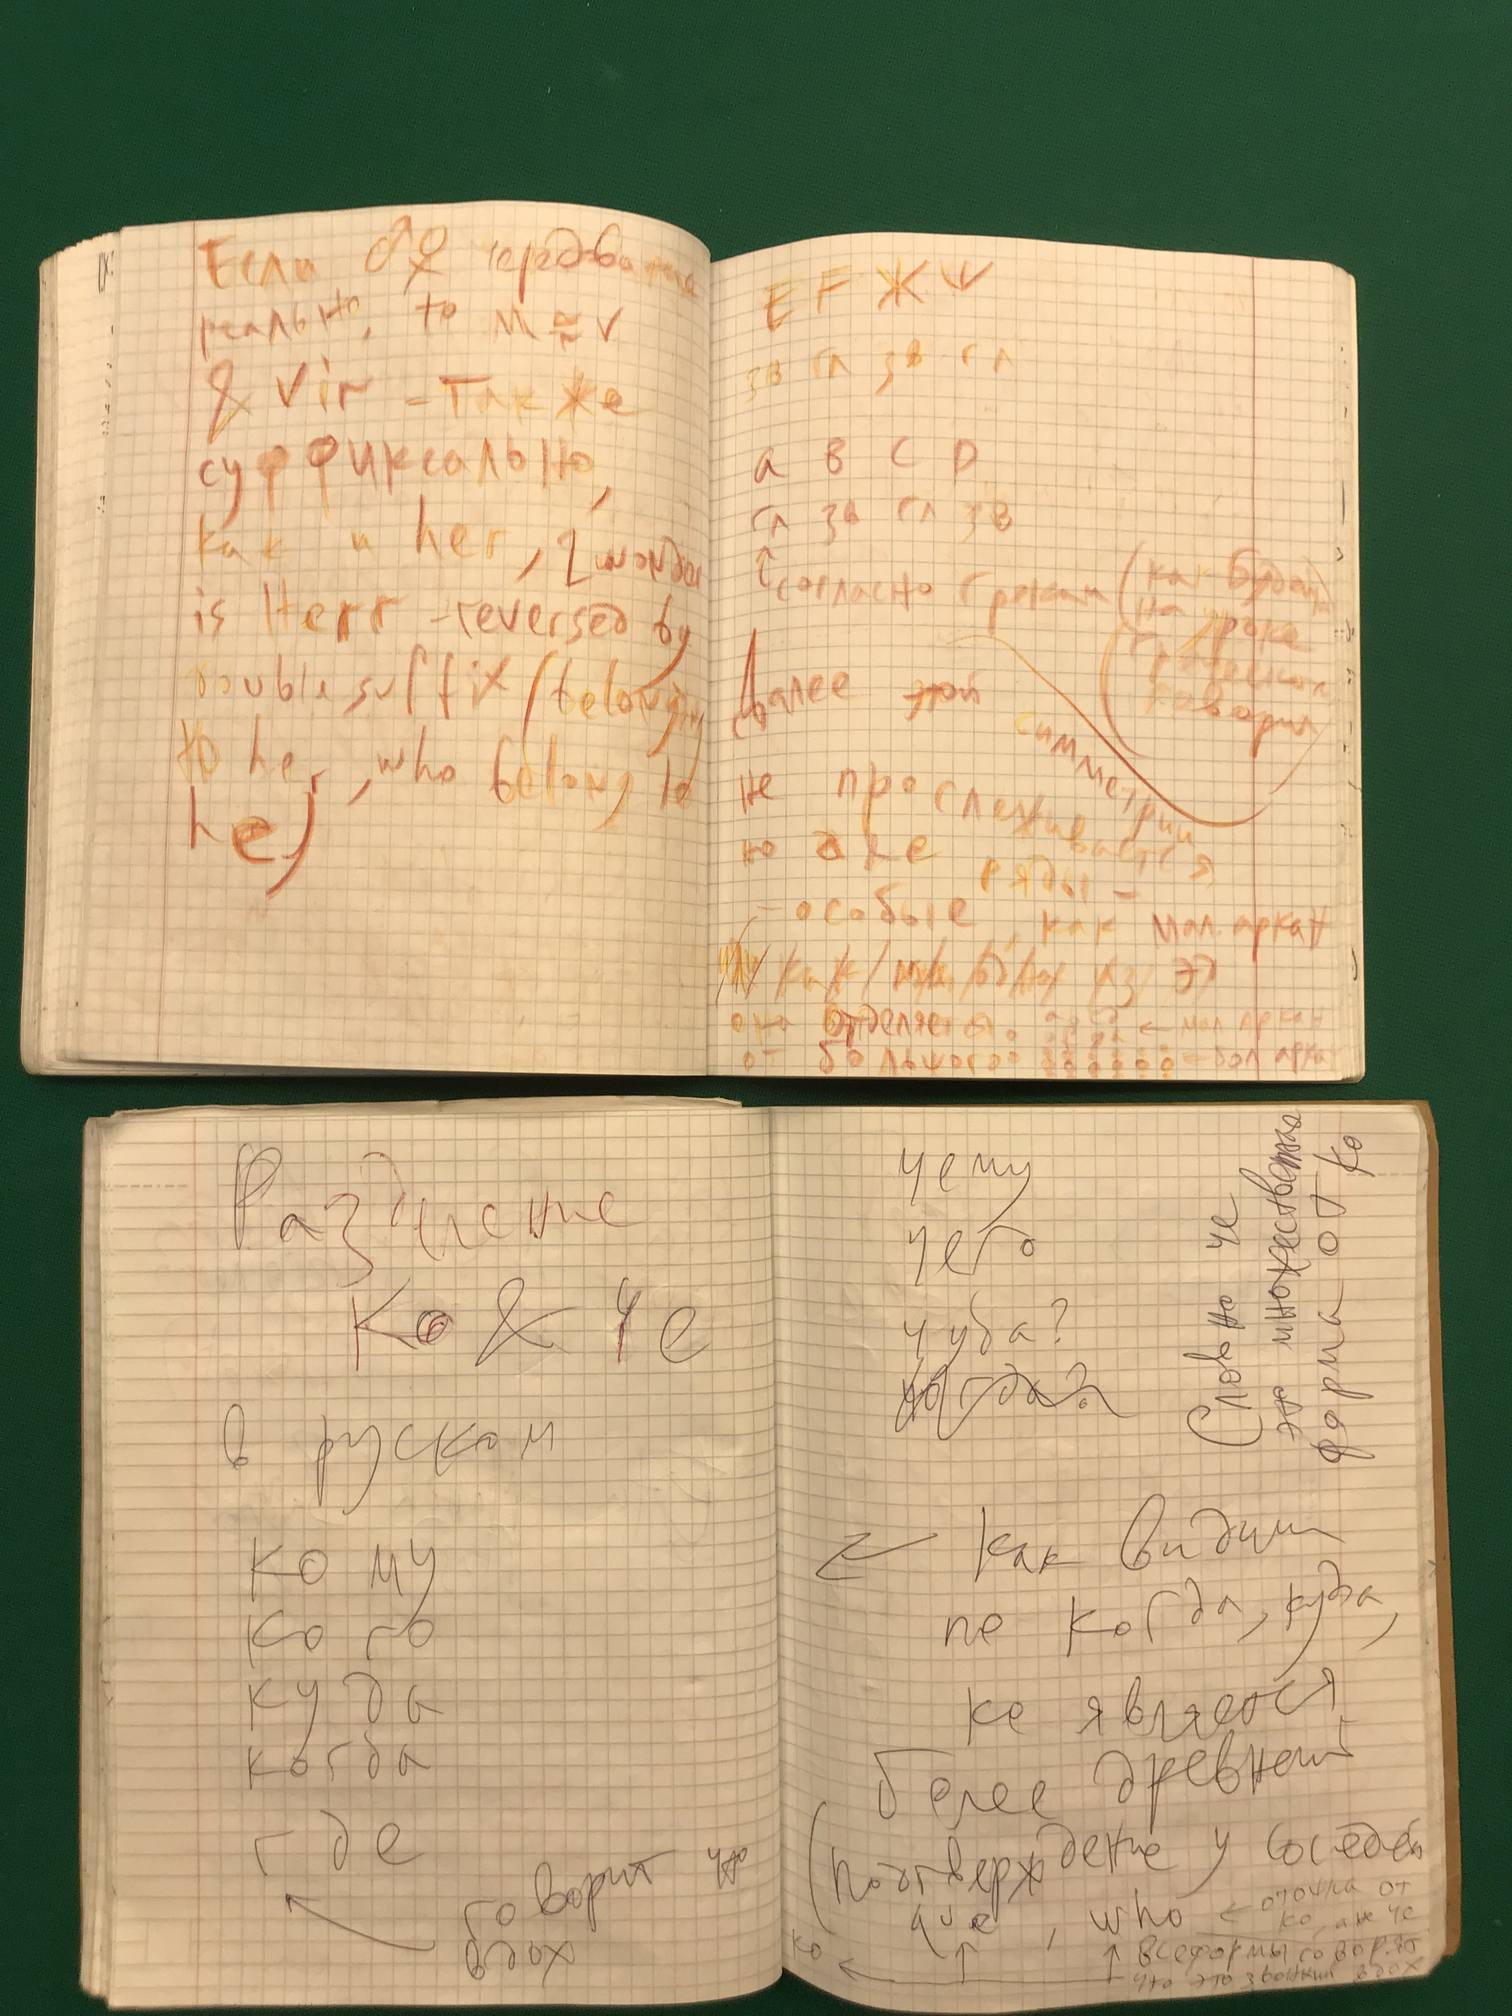 Если ♂♀ чередование
реально, то M ≅ V
& Vir – также
суффиксально,
как и her,
is Herr reversed by
double suffix (belonging
to her, who belong to
her)
E F Ж Ѱ
зв гл зв гл
a B C D
гл зв гл зв
↑ согласно грекам (как будто
на уроке
говорил)
Далее этой симметрии
не прослеживается
но две ряды –
– особые, как мал. аркан
отделяется. ← мал аркан
от большого – бол арка
Разделение
Ко & Че
в руском
кому
кого
куда
когда
где
говорит что
вдох
чему
чего
чуда?
когда?
Словно че
это множественная
форма от ко
← Как видим
по когда, куда,
ке является
более древней
(подтверждение у соседей
que, who ← отточка от
ко, а не че
ко ← все формы говорят
что это звонкий вдох